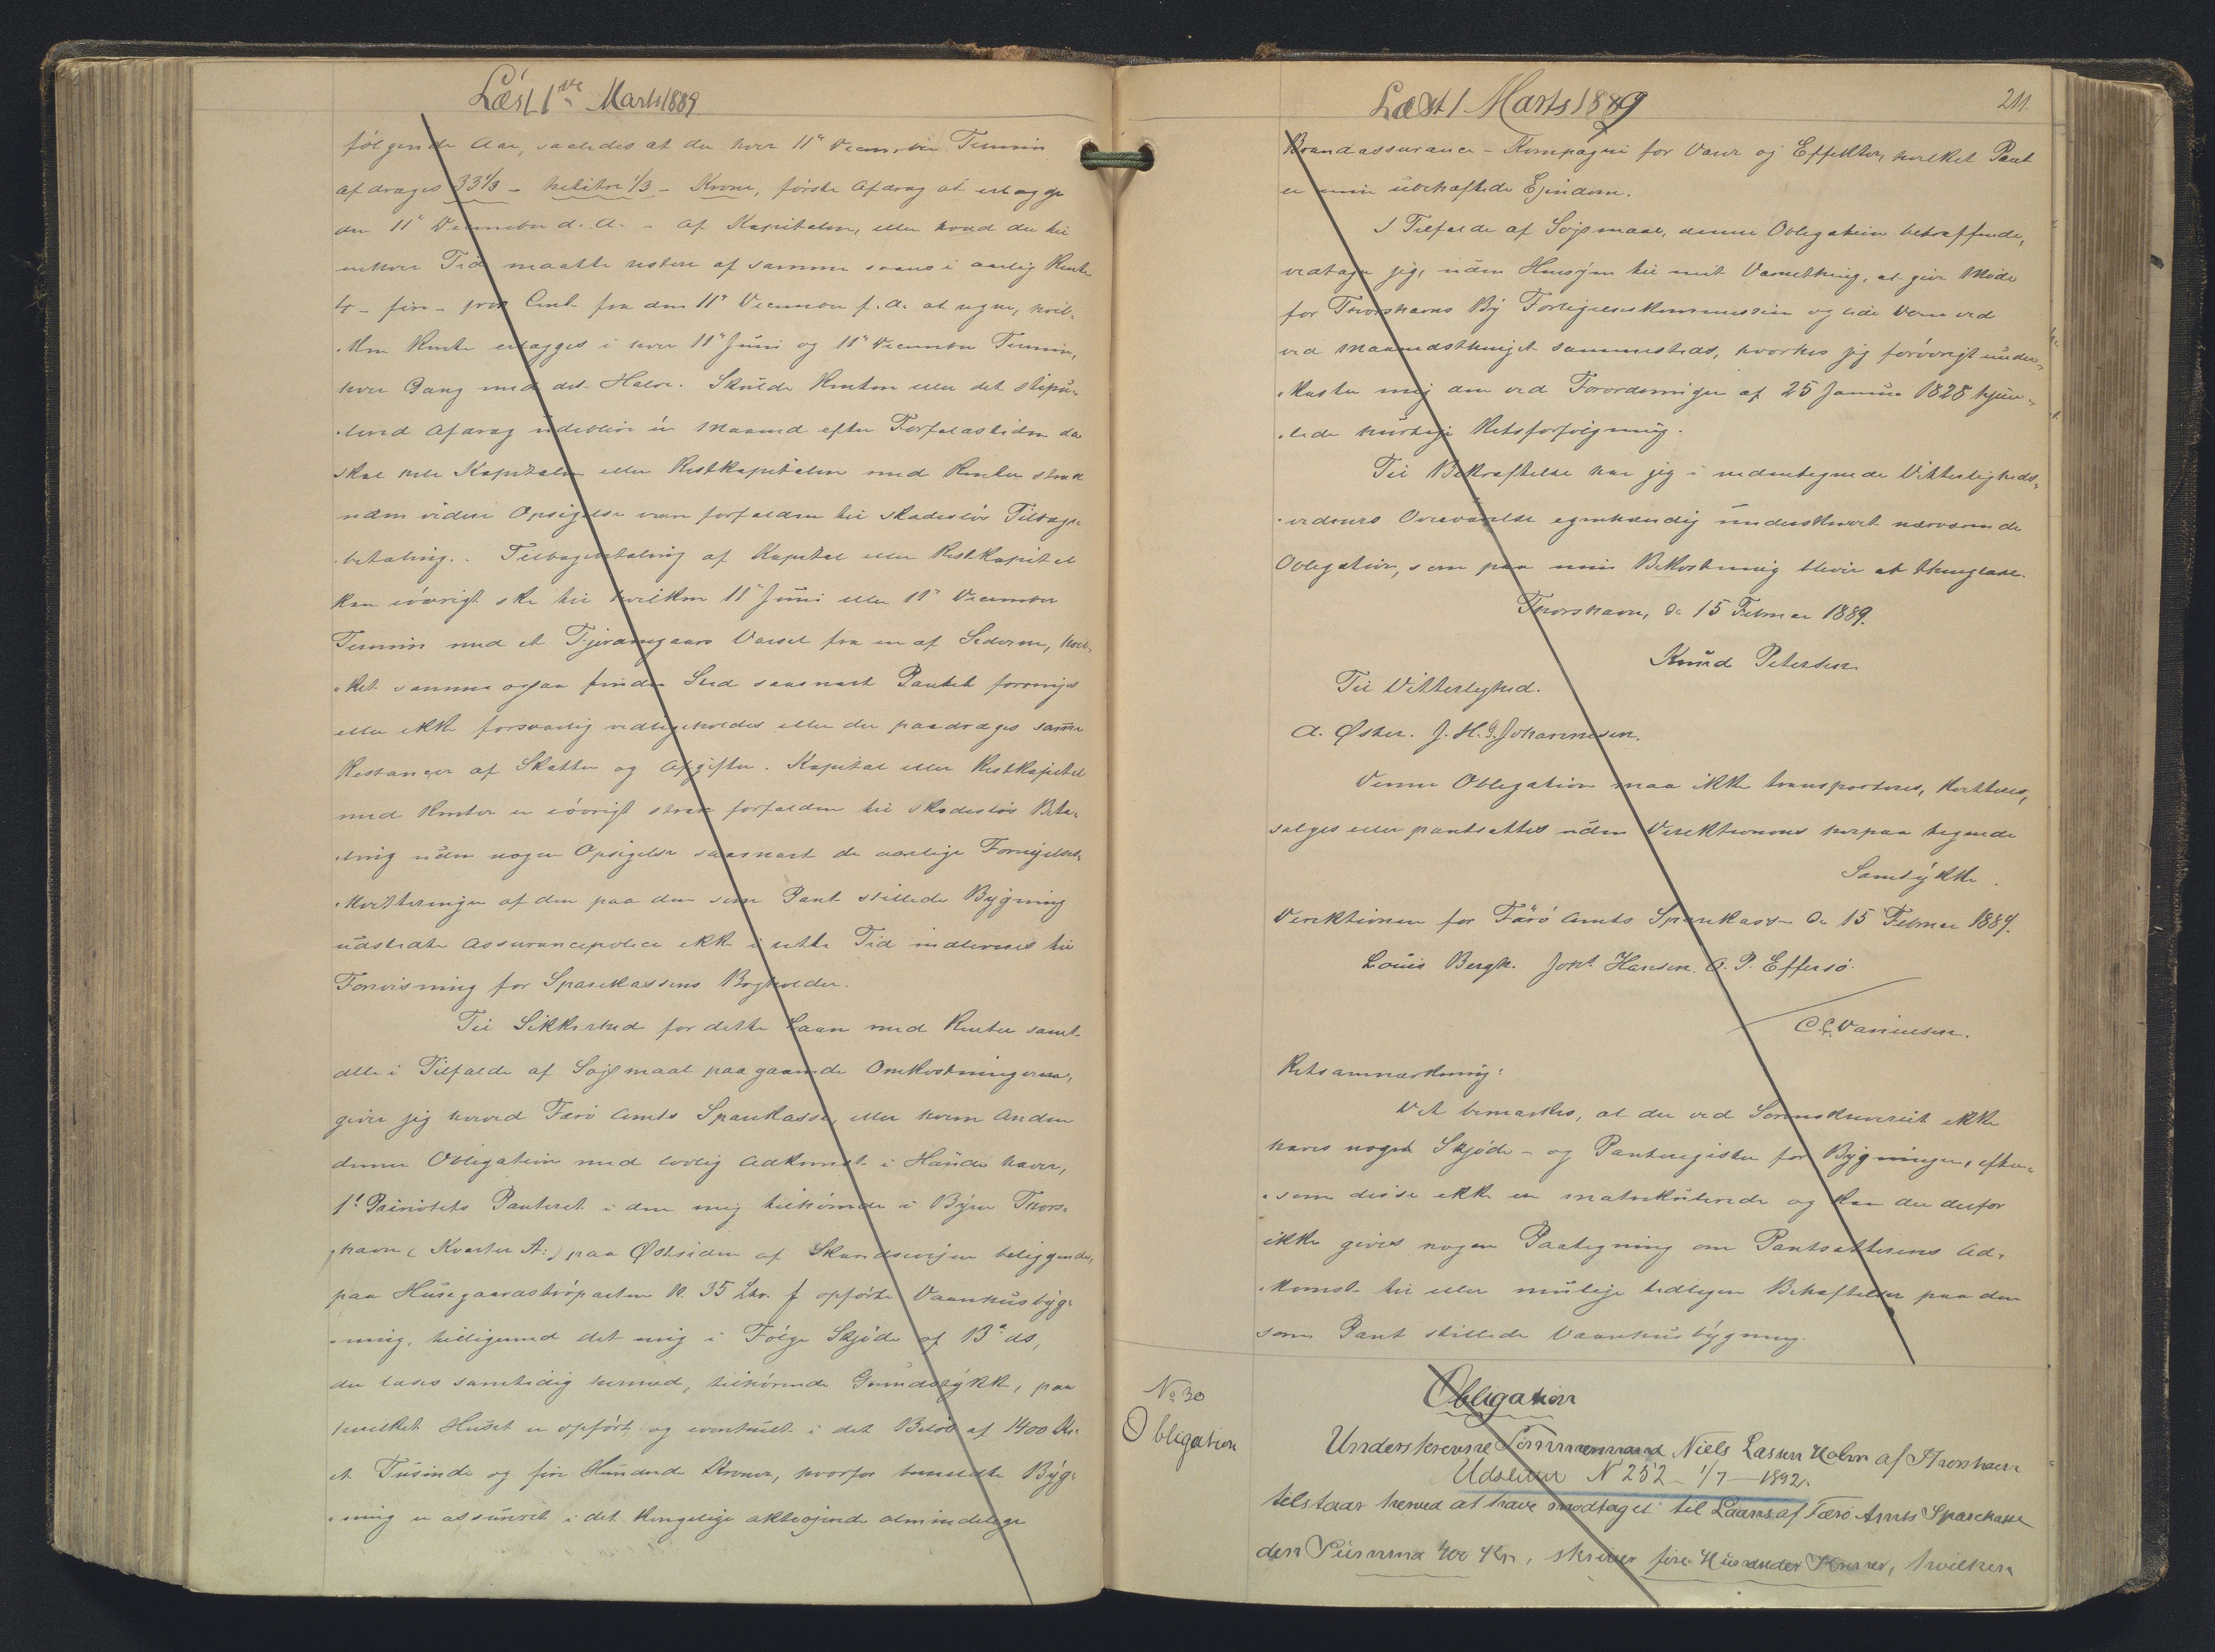 Læst 1ste Marts 1889
følgende Aar, saaledes at der hver 11te December Termin
afdrages 33 1/3 - tretitre 1/3 - Kroner, første Afdrag at erlægge
den 11te December d. A. - af Kapitalen, eller hvad der til
enhver Tid maatte restere af samme svares i aarlig Rente
4 - fire - pro Cent fra den 11te December f. A. at regne, hvil-
ken Rente erlægges i hver 11te Juni og 11te December Termin,
hver Gang med det Halve. Skulde Renten eller det stipu-
lered Afdrag udeblive én Maaned efter Forfaldstiden da
skal hele Kapitalen eller Restkapitalen med Renter strax
uden videre Opsigelse være forfalden til skadesløs Tilbage-
betaling. Tilbagebetaling af Kapital eller Restkapital
kan iøvrigt ske til hvilken 11te Juni eller 11te December
Termin med et Fjerdingaars Varsel fra en af Siderne, hvil-
ket samme ogsaa finder Sted saasnart Pantet forringes
eller ikke forsvarlig vedligeholdes eller der paadrages samme
Restancer af Skatter og Afgifter. Kapital eller Restkapital
med Renter er iøvrigt strax forfalden til skadesløs Beta-
ling uden nogen Opsigelse saasnart de aarlige Fornyelses-
kvitteringer af den paa den som Pant stillede Bygning
udstedte Assurancepolice ikke i rette Tid indleveres til
Forevisning for Sparekassens Bogholder.
Til Sikkerhed for dette Laan med Renter samt
alle i Tilfælde af Søgsmaal paagaaende Omkostningerne,
giver jeg herved Færø Amts Sparekasse, eller hvem Anden
denne Obligation med lovlig Adkomst i Hænde haver,
1ste Prioritets Panteret i den mig tilhørende i Byen Thors-
havn (Kvarter A:) paa Østsiden af Skandsevejen beliggende,
paa Husegaardstrøparten No. 35 Ltr. f opførte Vaanhusbyg-
ning, tilligemed det mig i Følge Skjøde af 13de ds,
der læses samtidig hermed, tilhørende Grundstykke, paa
hvilket Huset er opført og eventuelt i det Beløb af 1400 Kr.
et Tusinde og fire Hundrede Kroner, hvorfor bemeldte Byg-
ning er assureret i det Kongelige oktrojerede almindelige
Læst 1 Marts 1889
211.
Brandassurance-Kompagni for Varer og Effekter, hvilket Pant
er min ubehæftede Ejendom.
I Tilfælde af Søgsmaal, denne Obligation betræffende,
vedtager jeg, uden Hensyn til mit Værnething, at give Møde
for Thorshavns By Forligelseskommission og lide Dom ved
ved Maanedsthinget sammesteds, hvorhos jeg forøvrigt under-
kaster mig den ved Forordningen af 25 Januar 1828 hjem-
lede hurtige Retsforfølgning.
Til Bekræftelse har jeg i nedentegnede Vitterligheds-
vidners Overværelse egenhændig underskrevet nærværende
Obligation, som paa min Bekostning bliver at thinglæse.
Thorshavn, d. 15 Februar 1889.
Knud Petersen
Til Vitterlighed.
A. Øster. J. H. J. Johannesen.
Denne Obligation maa ikke transporteres, kvitteres,
sælges eller pantsættes uden Direktionens herpaa tegnede
Samtykke.
Direktionen for Færø Amts Sparekasse d. 15 Februar 1889.
Louis Bergh. Joh. Hansen. O. P. Effersø.
C. C. Danielsen.
Retsanmærkning:
Det bemærkes, at der ved Sorenskriveriet ikke
haves noget Skjøde- og Panteregister for Bygninger, efter-
som disse ikke er matrikulerede og kan der derfor
ikke gives nogen Paategning om Pantsætterens Ad-
komst til eller mulige tidligere Behæftelser paa den
som Pant stillede Vaanhusbygning.
No 30
Obligation
Obligation
Underskrevne Tømmermand Niels Lassen Holm af Thorshavn
Udslettet No 252 - 1/7 - 1892.
tilstaar herved at have modtaget til Laans af Færø Amts Sparekasse
den Summa 400 Kr., skriver fire Hundreder Kroner, hvilken